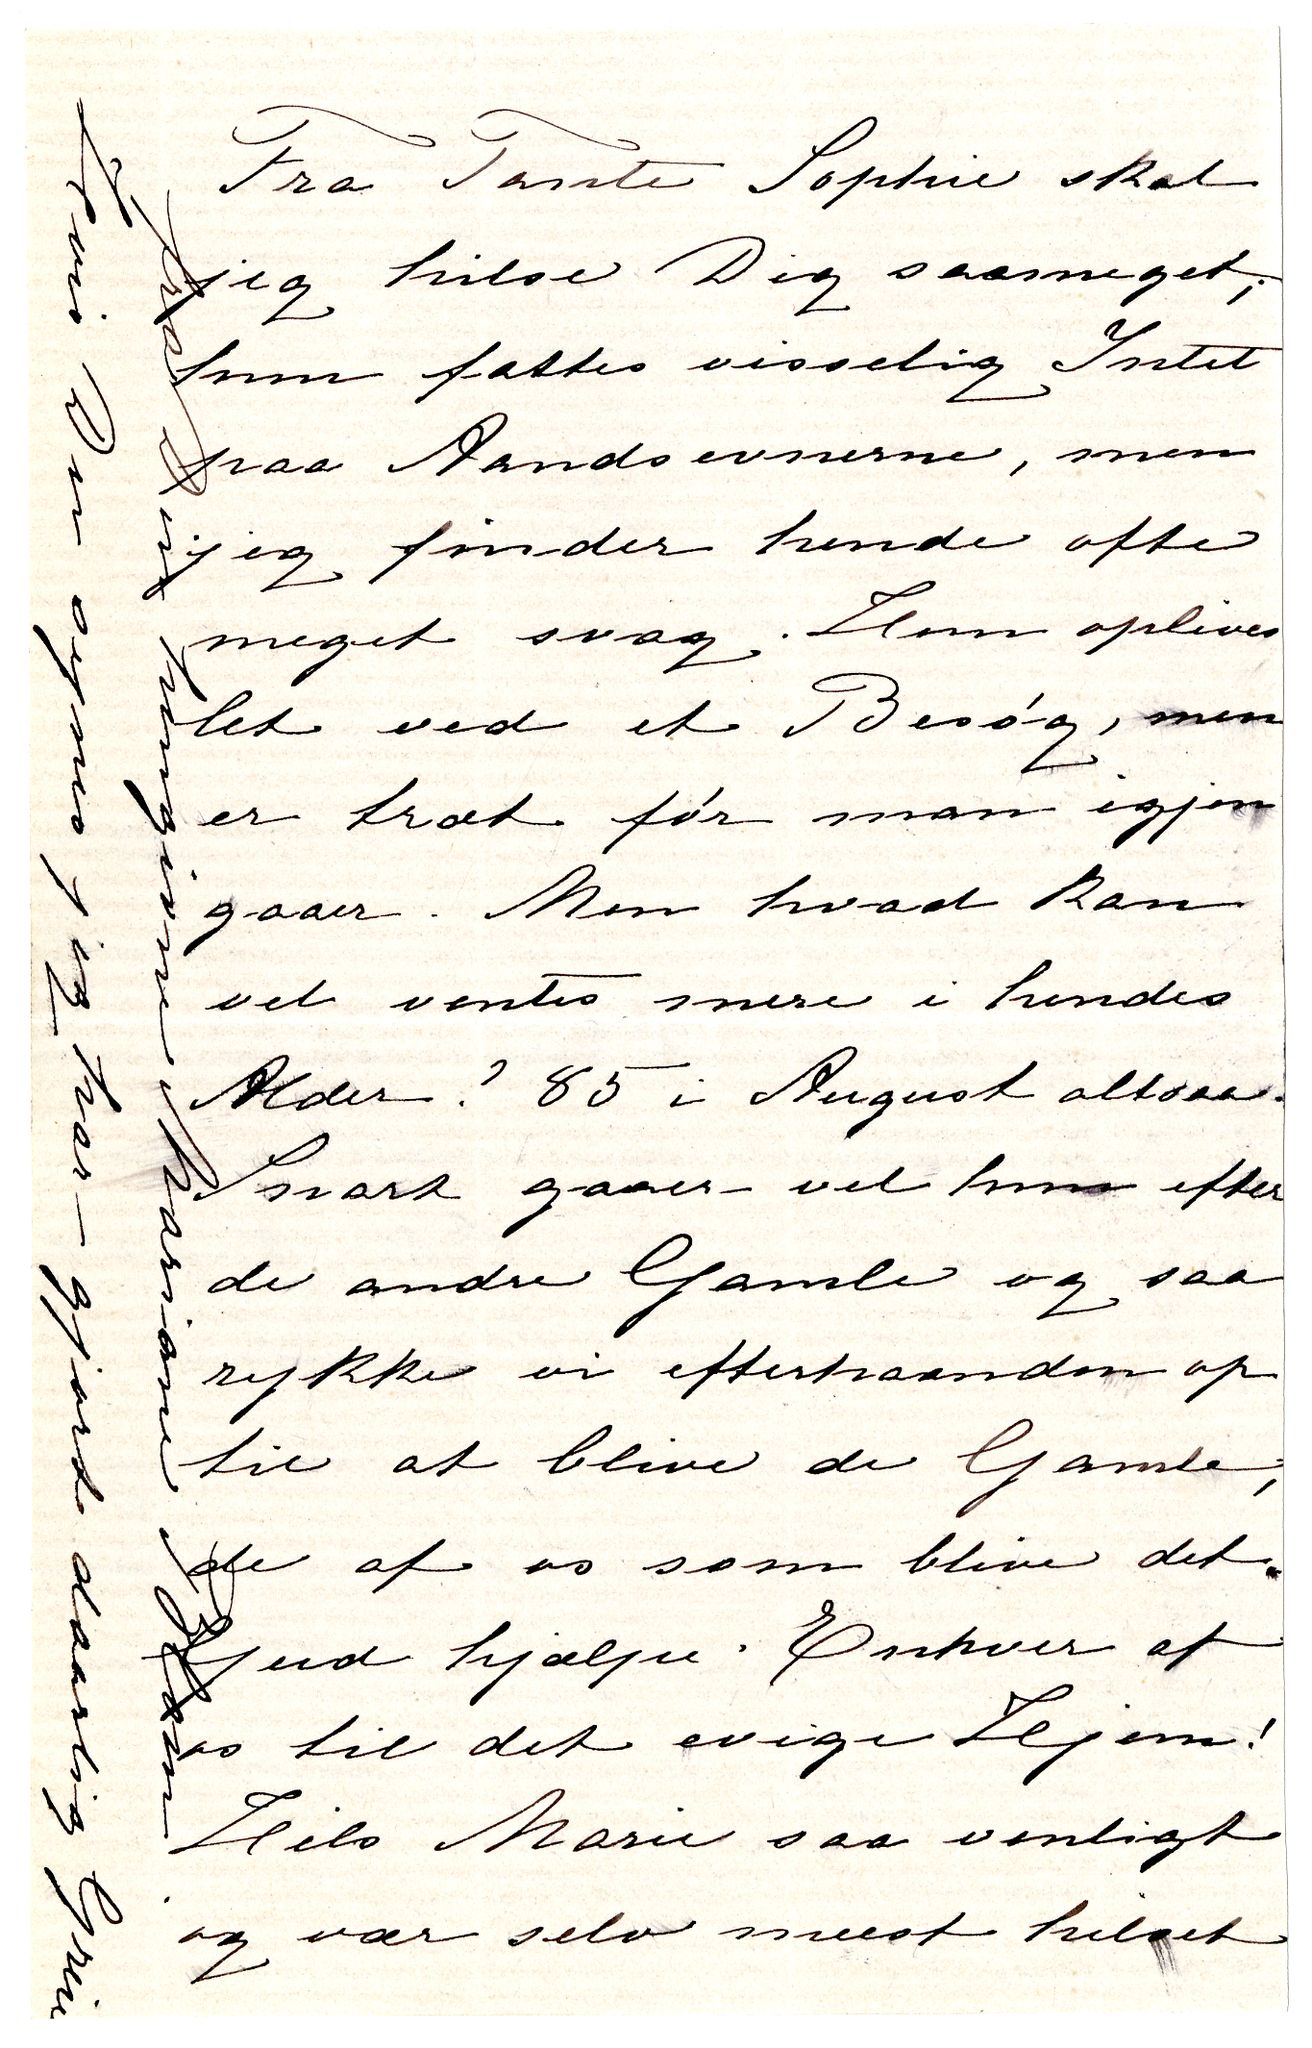 Fra Tante Sophie skal
jeg hilse Dig saameget;
hun fattes visselig Intet
paa Aandsevnerne, men
jeg finder hende ofte
meget svag. Hun oplives
let ved et Besøg, men
er træt før man igjen
gaaer. Men hvad kan
vel ventes mere i hendes
Alder? 85 i August altsaa.
Snart gaaer vel hun efter
de andre Gamle og saa
rykke vi efterhaanden op
til at blive de Gamle,
de af os som blive det.
Gud hjælpe Enhver af
os til det evige Hjem!
Hils Marie saa venligt
og vær selv meest hilset
fra Din hengivne Mariane
Du synes jeg har gjort daarlig